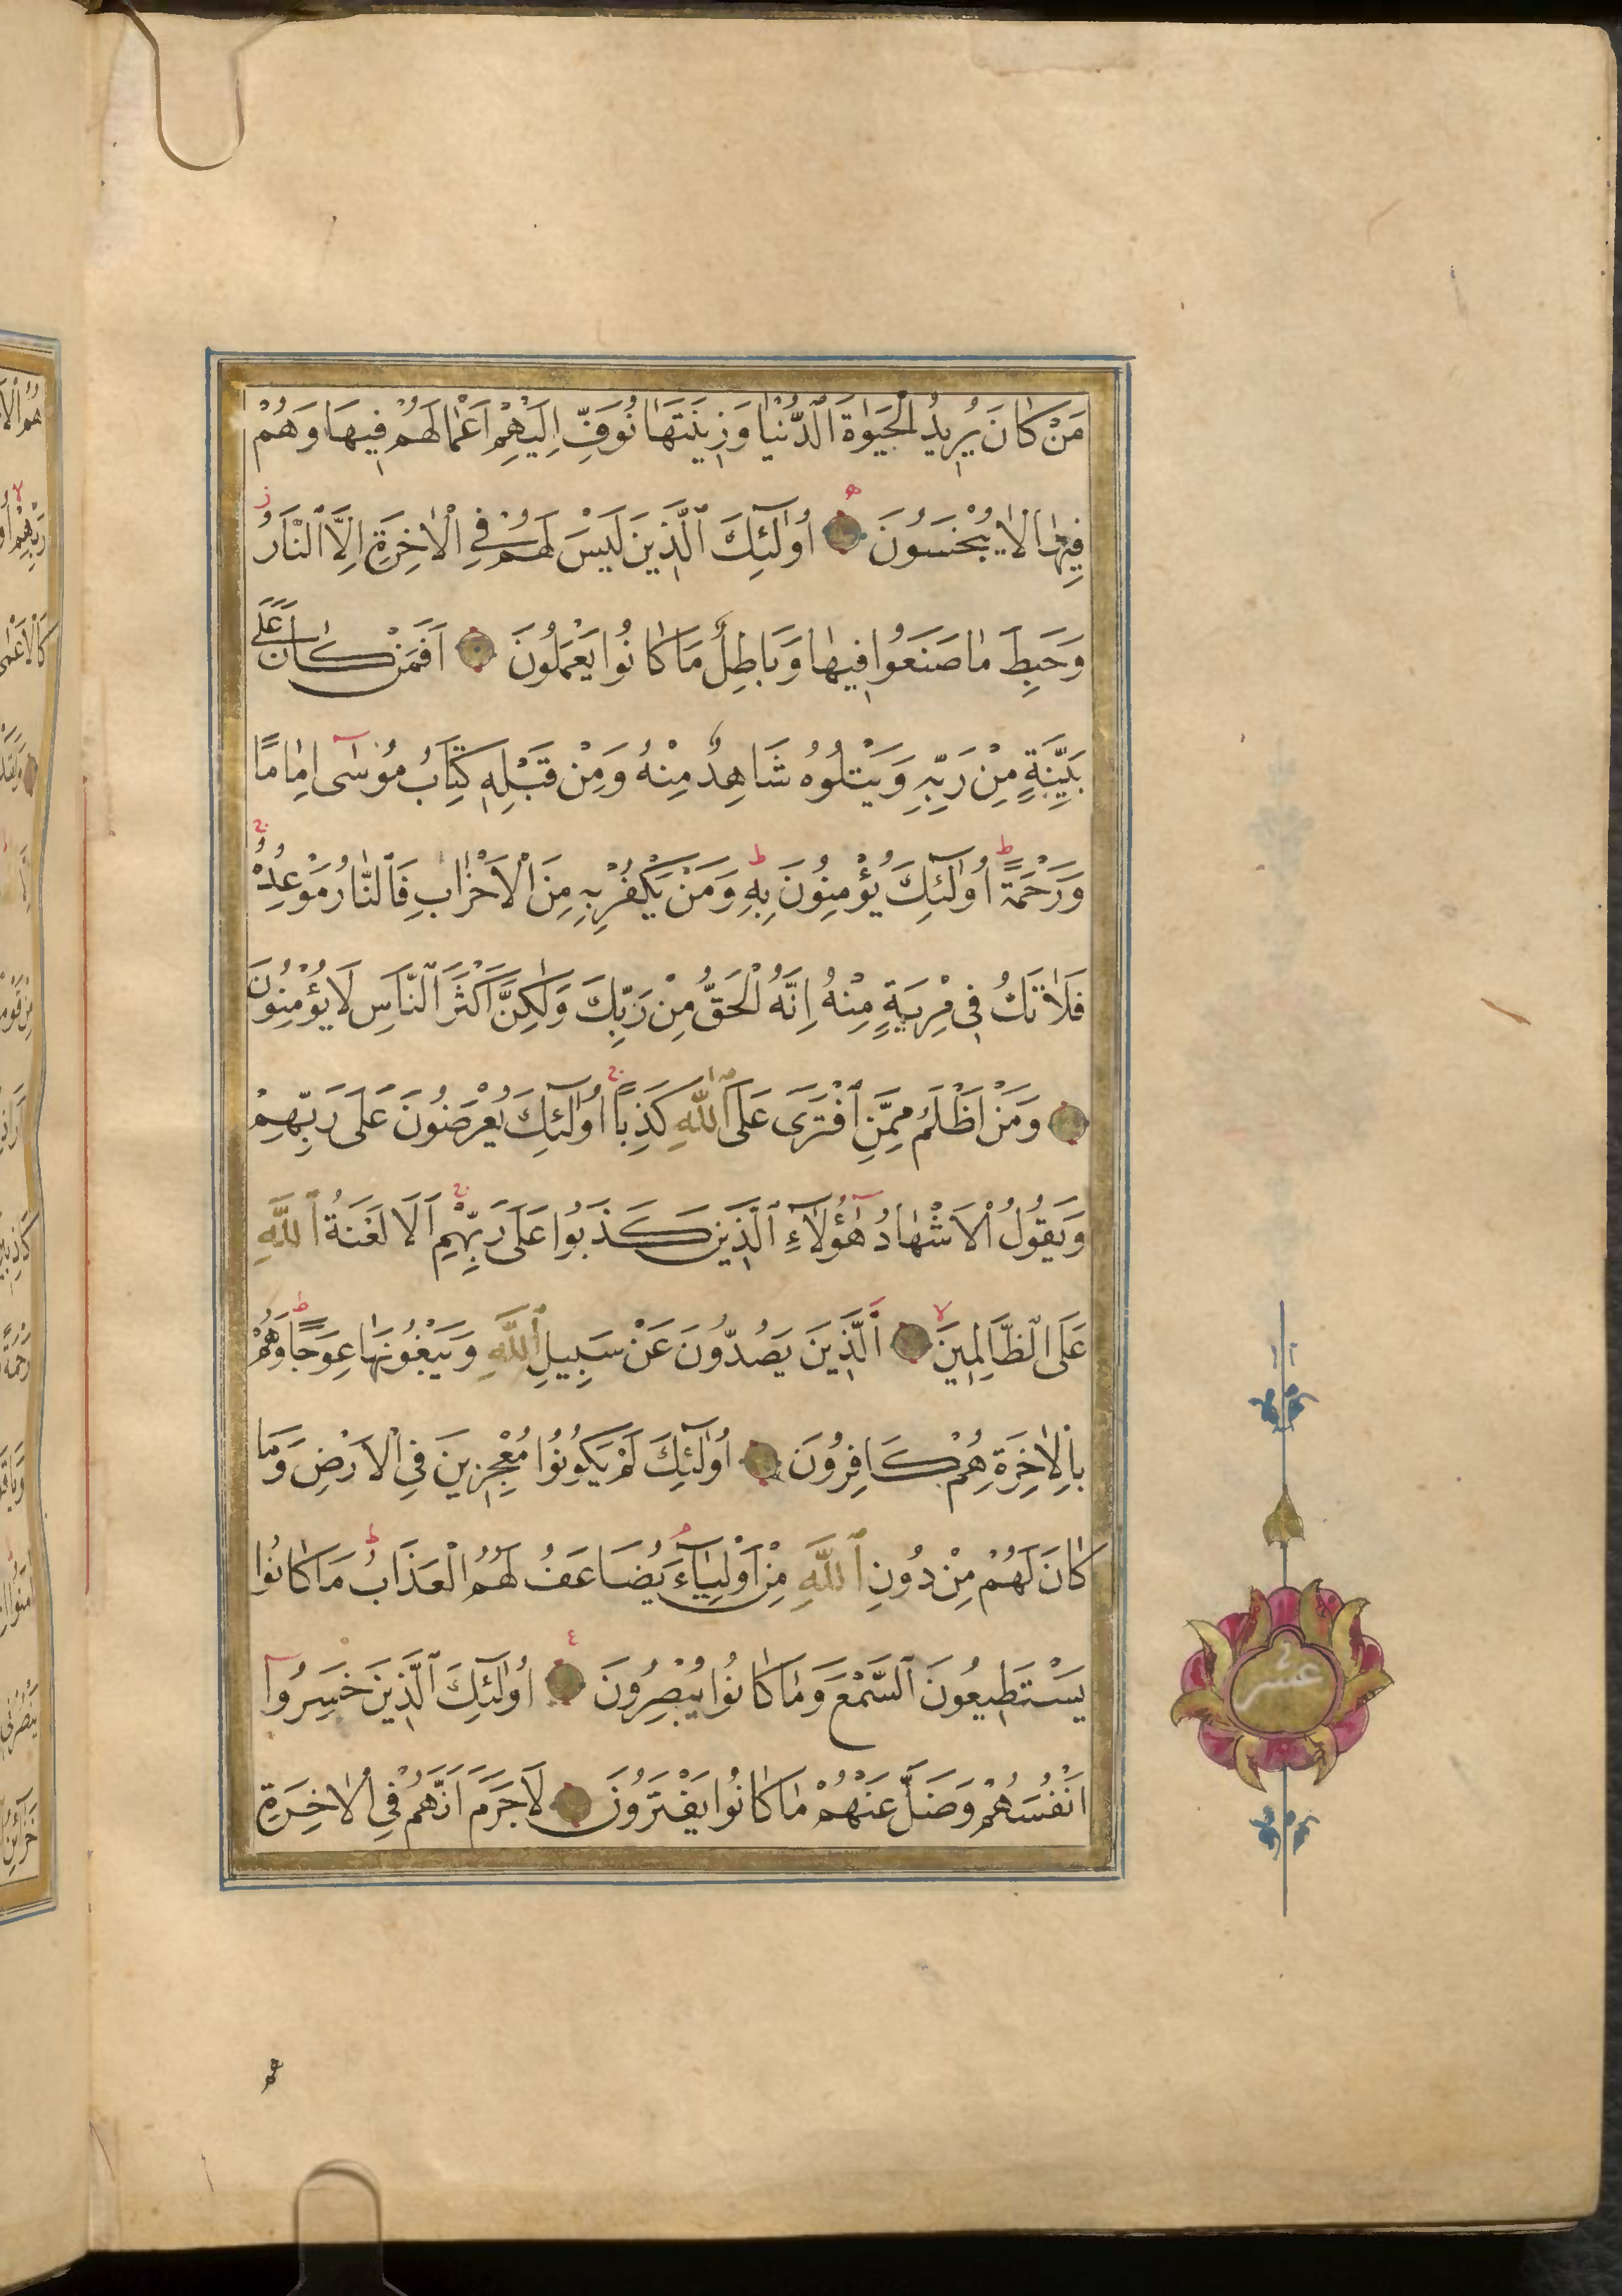 مَنْ كَانَ يُرِيدُ الْحَيٰوةَ الدُّنْيَا وَزِينَتَهَا نُوَفِّ اِلَيْهِمْ اَعْمَالَهُمْ فِيهَا وَهُمْ
فِيهَا لَا يُبْخَسُونَ اُولٰٓئِكَ الَّذِينَ لَيْسَ لَهُمْ فِي الْاٰخِرَةِ اِلَّا النَّارُ
وَحَبِطَ مَا صَنَعُوا فِيهَا وَبَاطِلٌ مَا كَانُوا يَعْمَلُونَ اَفَمَنْ كَانَ عَلٰى
بَيِّنَةٍ مِنْ رَبِّهِ وَيَتْلُوهُ شَاهِدٌ مِنْهُ وَمِنْ قَبْلِهِ كِتَابُ مُوسٰٓى اِمَامًا
وَرَحْمَةً اُولٰٓئِكَ يُؤْمِنُونَ بِهِ وَمَنْ يَكْفُرْ بِهِ مِنَ الْاَحْزَابِ فَالنَّارُ مَوْعِدُهُ
فَلَا تَكُ فِي مِرْيَةٍ مِنْهُ اِنَّهُ الْحَقُّ مِنْ رَبِّكَ وَلٰكِنَّ اَكْثَرَ النَّاسِ لَا يُؤْمِنُونَ
وَمَنْ اَظْلَمُ مِمَّنِ افْتَرٰى عَلَى اللّٰهِ كَذِبًا اُولٰٓئِكَ يُعْرَضُونَ عَلٰى رَبِّهِمْ
وَيَقُولُ الْاَشْهَادُ هٰٓؤُلَآءِ الَّذِينَ كَذَبُوا عَلٰى رَبِّهِمْ اَلَا لَعْنَةُ اللّٰهِ
عَلَى الظَّالِمِينَ اَلَّذِينَ يَصُدُّونَ عَنْ سَبِيلِ اللّٰهِ وَيَبْغُونَهَا عِوَجًا وَهُمْ
بِالْاٰخِرَةِ هُمْ كَافِرُونَ اُولٰٓئِكَ لَمْ يَكُونُوا مُعْجِزِينَ فِي الْاَرْضِ وَمَا
كَانَ لَهُمْ مِنْ دُونِ اللّٰهِ مِنْ اَوْلِيَآءَ يُضَاعَفُ لَهُمُ الْعَذَابُ مَا كَانُوا
يَسْتَطِيعُونَ السَّمْعَ وَمَا كَانُوا يُبْصِرُونَ اُولٰٓئِكَ الَّذِينَ خَسِرُوٓا
اَنْفُسَهُمْ وَضَلَّ عَنْهُمْ مَا كَانُوا يَفْتَرُونَ لَا جَرَمَ اَنَّهُمْ فِي الْاٰخِرَةِ
عشر
هم